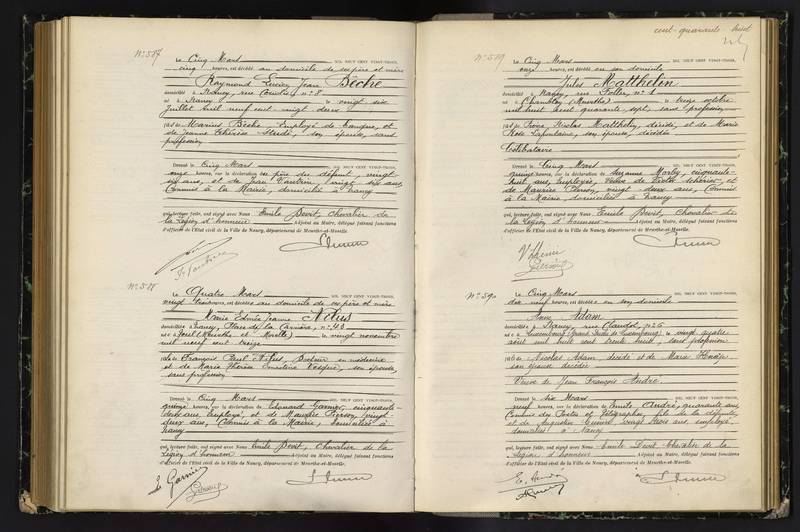 N° 587
Le Cinq Mars MIL NEUF CENT VINGT-TROIS,
cinq heures, est décédé au domicile de ses père et mère
Raymond Lucien Jean Bêche
domicilié à Nancy, rue n° 8
né à Nancy le vingt six
Juillet mil neuf cent vingt deux
fils de Marius Bêche, Employé de banque, et
de Jeanne son épouse, sans
profession
Dressé le Cinq Mars MIL NEUF CENT VINGT-TROIS,
onze heures, sur la déclaration du père du défunt, vingt
six ans, et de Jean Vautrin, vingt six ans,
Commis à la Mairie, domiciliés à Nancy
qui, lecture faite, ont signé avec Nous Emile Devit, Chevalier de
la Légion d'honneur Adjoint au Maire, délégué faisant fonctions
d'officier de l'Etat civil de la Ville de Nancy, département de Meurthe-et-Moselle.
N° 588
Le Quatre Mars MIL NEUF CENT VINGT-TROIS,
vingt trois heures, est décédée au domicile de ses père et mère
Marie Edmée Jeanne Nilus
domiciliée à Nancy, Place de la Carrière, n° 43
née à Toul (Meurthe et Moselle) le vingt novembre
mil neuf cent treize
fille de François Paul Nilus, Docteur en médecine
et de Marie Thérèse Ernestine son épouse,
sans profession
Dressé le Cinq Mars MIL NEUF CENT VINGT-TROIS,
quinze heures, sur la déclaration de Edouard Garnier, cinquante
deux ans, employé, et de Maurice Pierson, vingt
deux ans, Commis à la Mairie, domiciliés à
Nancy
qui, lecture faite, ont signé avec Nous Emile Devit, Chevalier de la
Légion d'honneur Adjoint au Maire, délégué faisant fonctions
d'officier de l'Etat civil de la Ville de Nancy, département de Meurthe-et-Moselle.
Garnier
cent quarante huit
N° 589
Le Cinq Mars MIL NEUF CENT VINGT-TROIS,
onze heures, est décédé en son domicile
Jules Matthelin
domicilié à Nancy, rue n° 1
né à Chambley (Meurthe) le treize octobre
mil huit cent quarante sept, sans profession
fils de Pierre Nicolas Matthelin, décédé, et de Marie
Rose Lafontaine, son épouse, décédée
Célibataire
Dressé le Cinq Mars MIL NEUF CENT VINGT-TROIS,
quinze heures, sur la déclaration de Suzanne cinquante-
huit ans, Employée, Veuve de Victor et
de Maurice Pierson, vingt-deux ans, Commis
à la Mairie, domiciliés à Nancy
qui, lecture faite, ont signé avec Nous Emile Devit, Chevalier de
la Légion d'honneur Adjoint au Maire, délégué faisant fonctions
d'officier de l'Etat civil de la Ville de Nancy, département de Meurthe-et-Moselle.
N° 590
Le Cinq Mars MIL NEUF CENT VINGT-TROIS,
dix neuf heures, est décédée en son domicile
Anne Adam
domiciliée à Nancy, rue Claudot, n° 6
née à Luxembourg (Grand Duché de Luxembourg) le vingt quatre
août mil huit cent trente huit, sans profession
fille de Nicolas Adam décédé et de Marie
son épouse décédée
Veuve de Jean François André
Dressé le Six Mars MIL NEUF CENT VINGT-TROIS,
neuf heures, sur la déclaration de Emile André, quarante ans,
Commis des Postes et Télégraphes, fils de la défunte,
et de Augustin vingt trois ans, employé,
domiciliés à Nancy
qui, lecture faite, ont signé avec Nous Emile Devit Chevalier de la
Légion d'honneur Adjoint au Maire, délégué faisant fonctions
d'officier de l'Etat civil de la Ville de Nancy, département de Meurthe-et-Moselle.
E. André